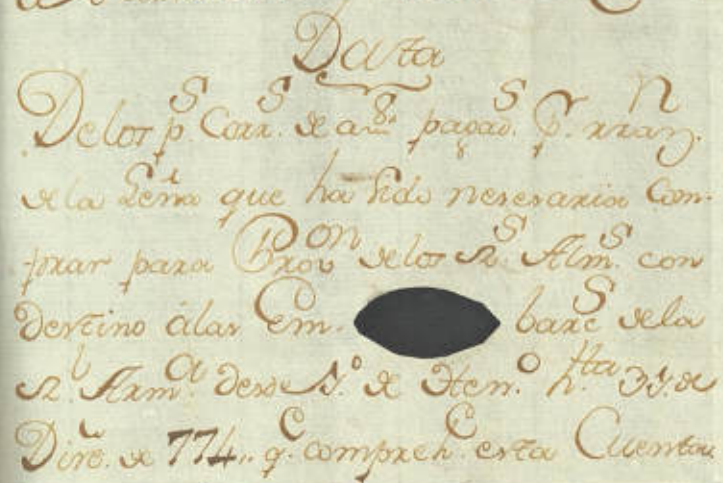 Data
De los p.s Corr.s de am.s pagad.s p.r rraz.n
de la Leña que ha sido nesesaria Com-
prar para Prov.on de los R.s Alm.s con
destino á las Em. barc.s de la
R.l Arm.a desde 1.o de Hen.o h.tta 31. de
Dire. de 774,, q. compreh. esta Cuenta